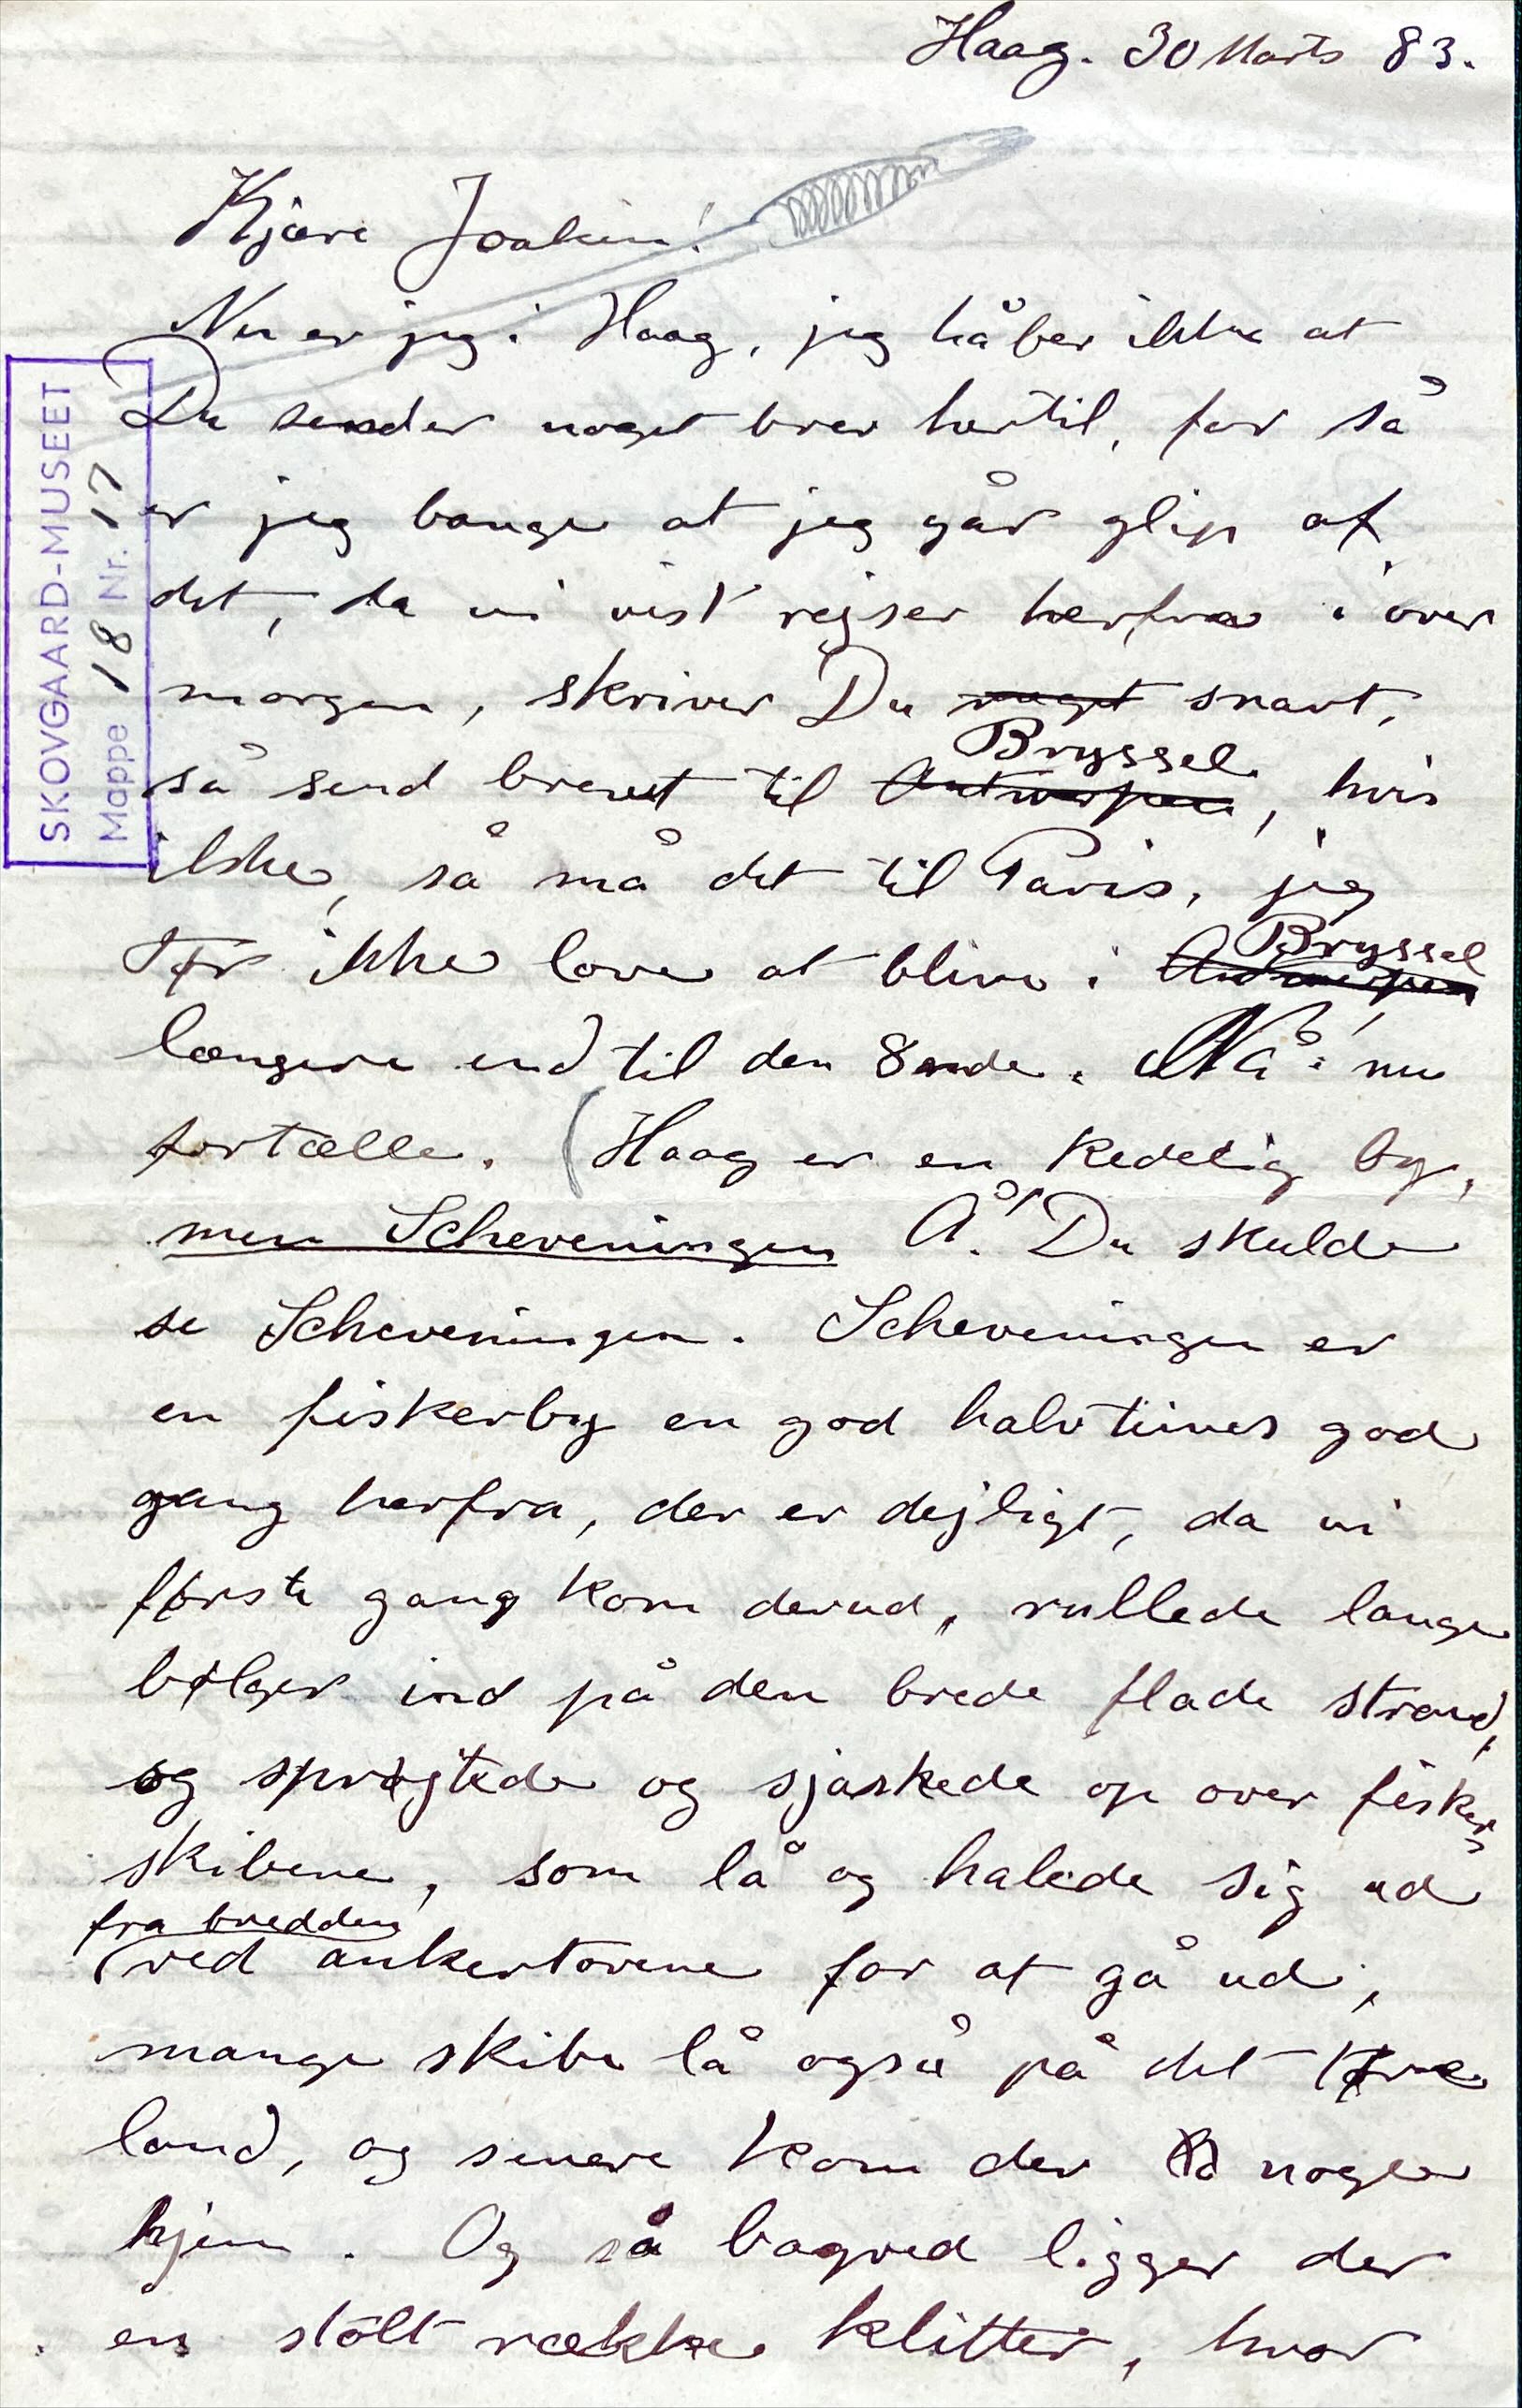 Haag. 30 Marts 83.
Kjære Joakim!
Nu er jeg i Haag, jeg håber ikke at
Du sender noget brev hertil, for så
er jeg bange at jeg går glip af
det, da vi vist rejser herfra i over
morgen, skriver Du noget snart,
Bryssel
så send brevet til Antwerpen, hvis
ikke, så må det til Paris, jeg
Bryssel
tør ikke love at blive i Antwerpen
længere end til den 8ende. Nå! nu
fortælle. (Haag er en kedelig by,
men Scheveningen Å! Du skulde
se Scheveningen. Scheveningen er
en fiskerby en god halv times god
gang herfra, der er dejligt, da vi
første gang kom derud, rullede lange
bølger ind på den brede flade strand,
og sprøjtede og sjaskede op over fisker
skibene, som lå og halede sig ud
fra bredden
ved ankertovene for at gå ud,
mange skibe lå også på det tørre
land, og senere kom der nogle
hjem. Og så bagved ligger der
en stolt række klitter, hvor
SKOVGAARD-MUSEET
Mappe 18 Nr. 17